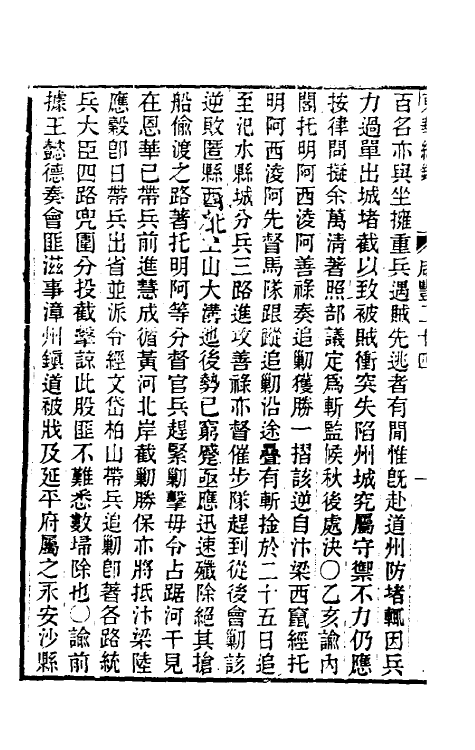 百名亦與坐擁重兵遇賊先逃者有閒惟旣赴道州防堵輒因兵
力過單出城堵截以致被賊衝突失陷州城究屬守禦不力仍應
按律問擬余萬淸著照部議定爲斬監候秋後處決〇乙亥諭內
閣托明阿西淩阿善祿奏追勦獲勝一摺該逆自汴梁西竄經托
明阿西淩阿先督馬隊跟蹤追勦沿途疊有斬捦於二十五日追
至汜水縣城分兵三路進攻善祿亦督催步隊趕到從後會勦該
逆敗匿縣西北上山大溝迤後勢已窮蹙亟應迅速殲除絕其搶
船偷渡之路著托明阿等分督官兵趕緊勦擊毋令占踞河干見
在恩華已帶兵前進慧成循黃河北岸截勦勝保亦將抵汴梁陸
應穀卽日帶兵出省並派令經文岱柏山帶兵追勦卽著各路統
兵大臣四路兜圍分投截擊諒此股匪不難悉數埽除也〇諭前
據王懿德奏會匪滋事漳州鎭道被戕及延平府屬之永安沙縣